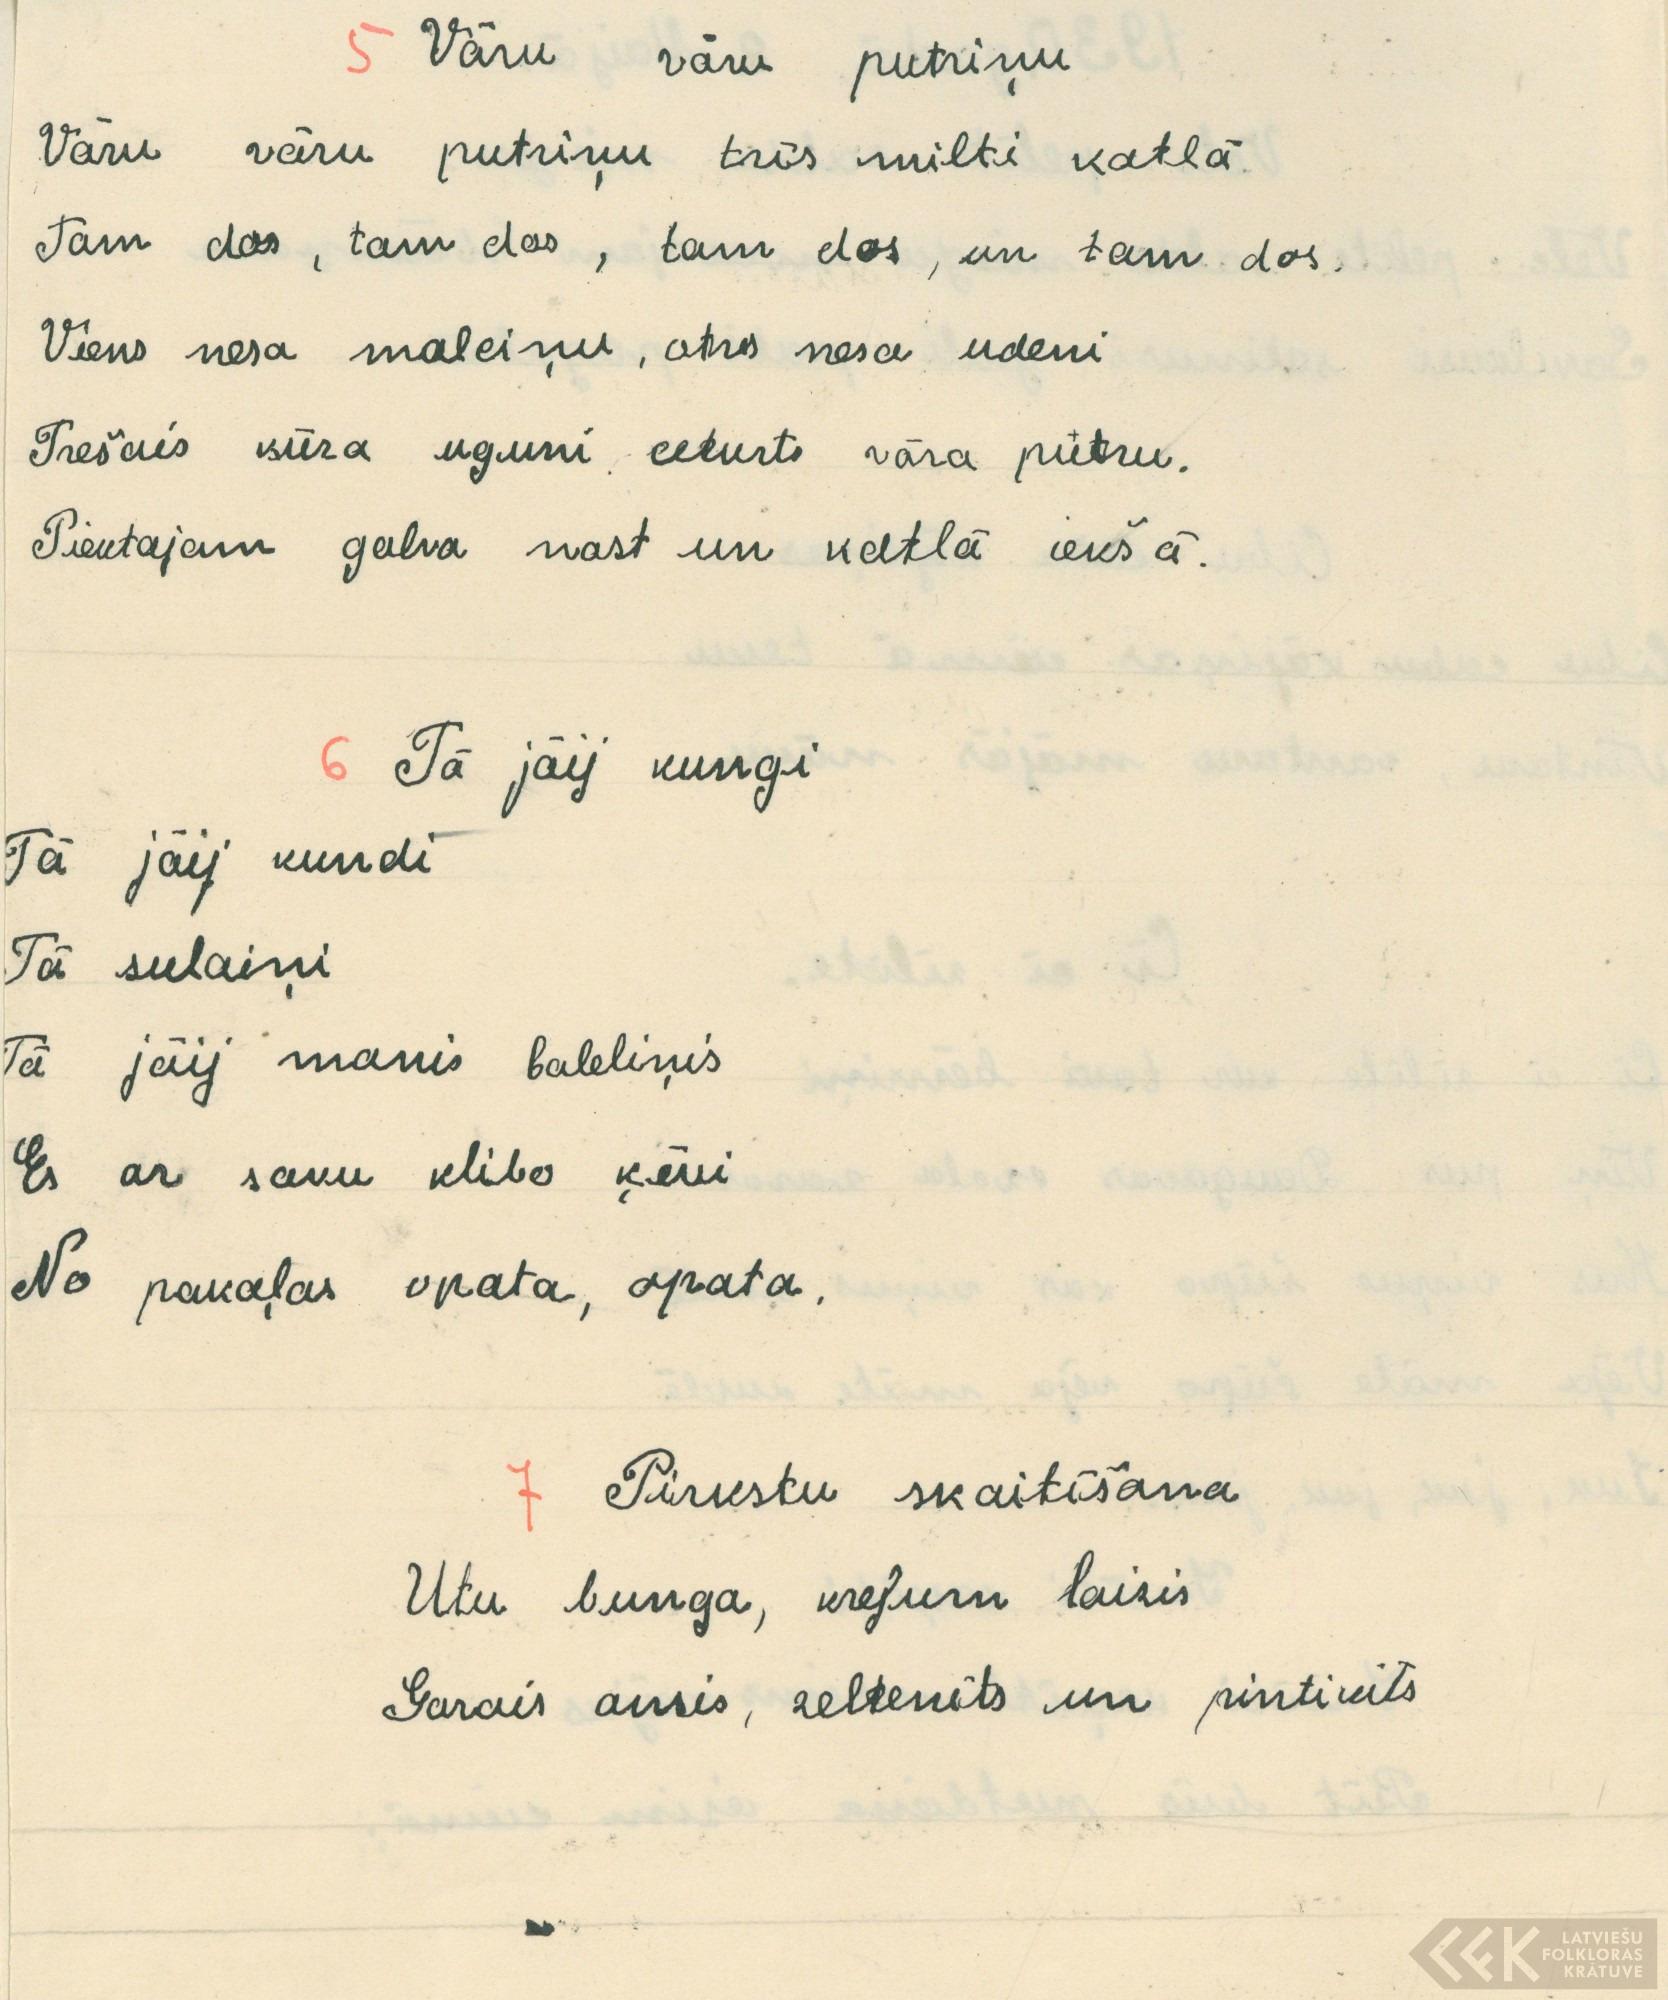 5 Vāru vāru putriņu
Vāru vāru putriņu trīs milti katlā.
Tam dos, tam dos, tam dos, un tam dos.
Viens nesa malciņu, otrs nesa udeni
Trešais kūra uguni ceturts vāra putru.
Piektajam galva nost un katlā iekšā.
6 Tā jāij kungi
Tā jāij kundi
Tā sulaiņi
Tā jāij manis baleliņis
Es ar savu klibo ķēvi
No pakaļas opata, opata.
7 Pirkstu skaitīšana
Utu bunga, krejum laizis
Garais ansis, zeltenīts un pintiķīts
LATVIEŠU
FOLKLORAS
KRĀTUVE